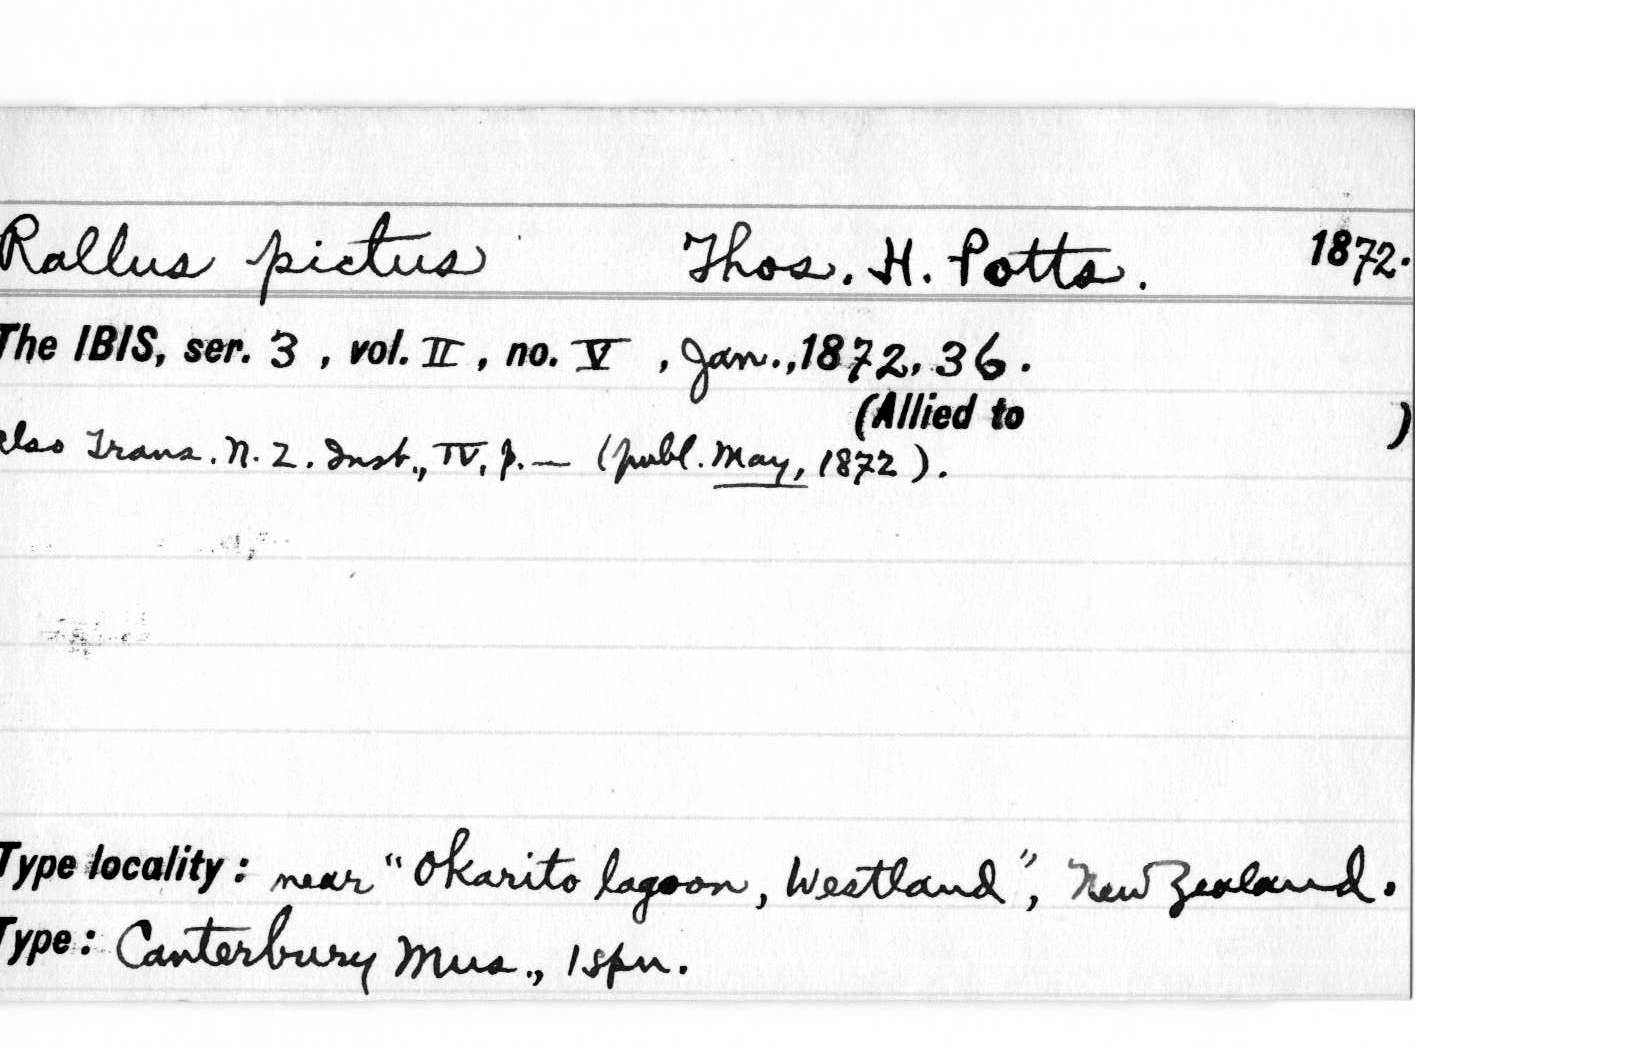 Rallus pictus Thos. H. Potts. 1872.
The IBIS, ser. 3, vol. II, no. V, Jan., 1872, 36.
(Allied to )
also Trans. N. Z. Inst., IV, p. — (publ. May, 1872).
Type locality: near "Okarito lagoon, Westland", New Zealand.
Type: Canterbury Mus., 1 spn.